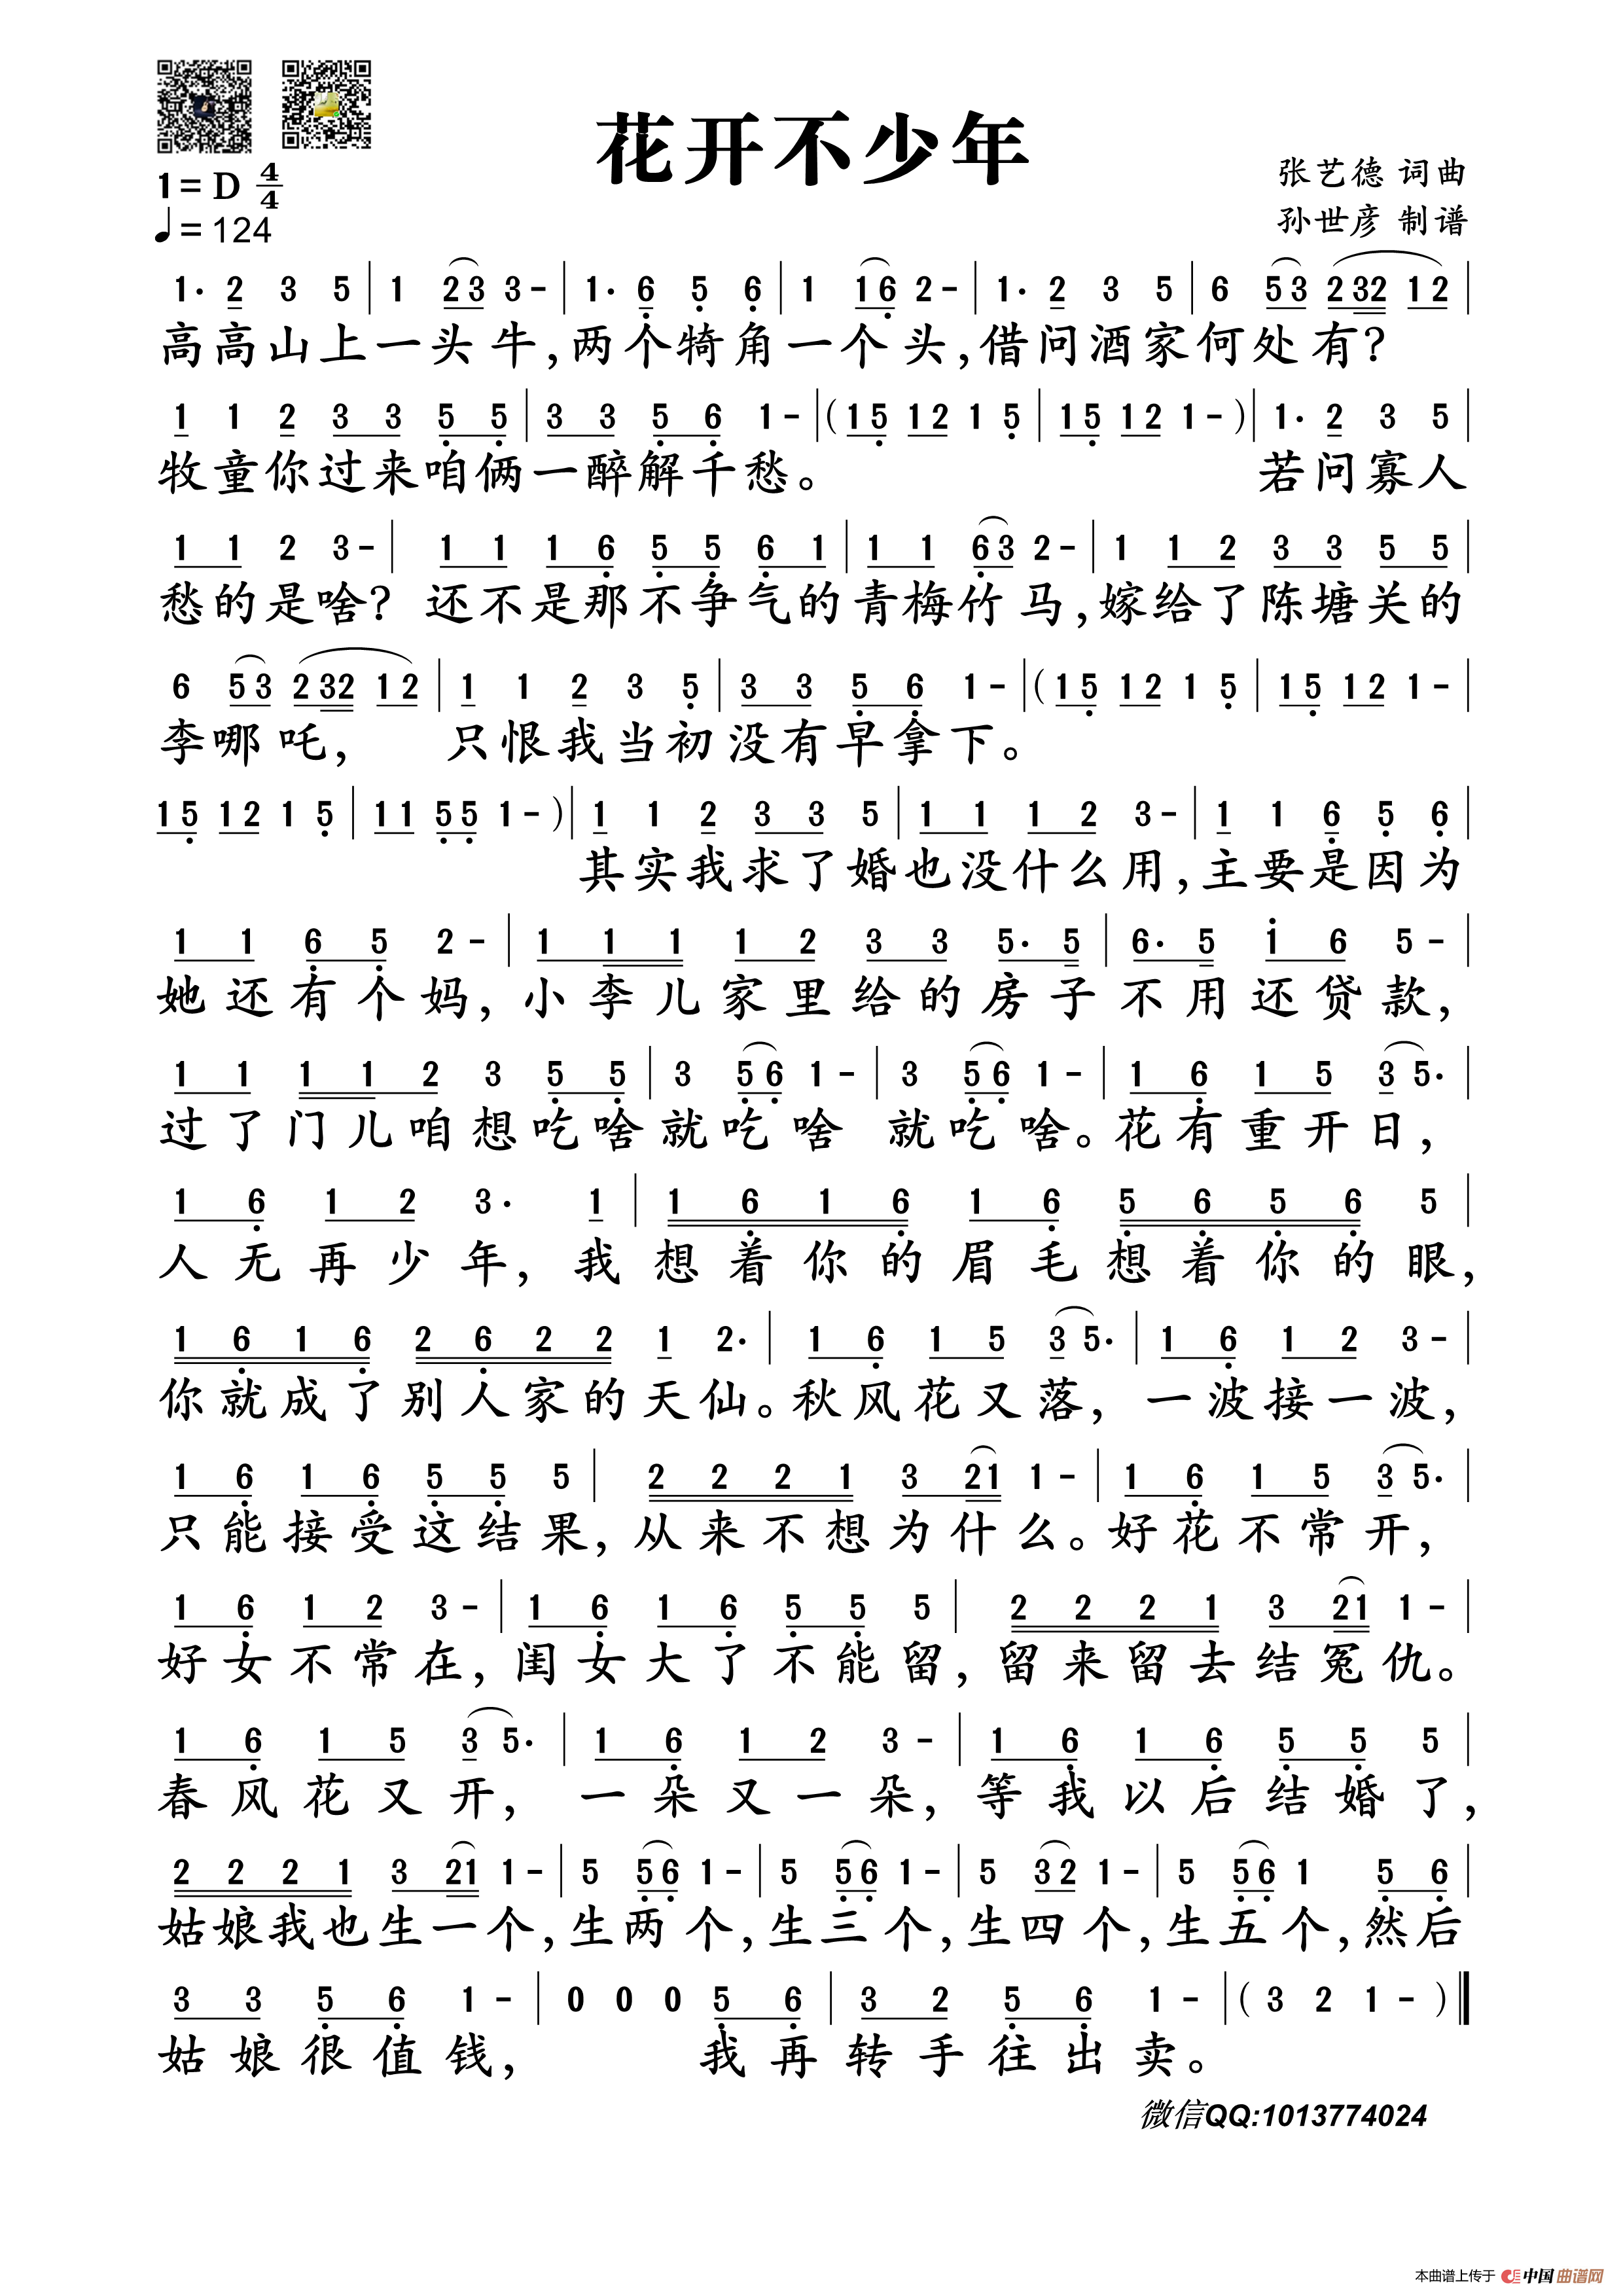 花开不少年
1=D 4/4
♩=124
张艺德 词曲
孙世彦 制谱
1· 2 3 5 | 1 2 3 3 - | 1· 6 5 6 | 1 1 6 2 - | 1· 2 3 5 | 6 5 3 2 32 1 2 |
高高山上一头牛,两个犄角一个头,借问酒家何处有?
1 1 2 3 3 5 5 | 3 3 5 6 1 - | ( 1 5 1 2 1 5 | 1 5 1 2 1 - ) | 1· 2 3 5 |
牧童你过来咱俩一醉解千愁。 若问寡人
1 1 2 3 - | 1 1 1 6 5 5 6 1 | 1 1 6 3 2 - | 1 1 2 3 3 5 5 |
愁的是啥? 还不是那不争气的青梅竹马,嫁给了陈塘关的
6 5 3 2 32 1 2 | 1 1 2 3 5 | 3 3 5 6 1 - | ( 1 5 1 2 1 5 | 1 5 1 2 1 - |
李哪吒, 只恨我当初没有早拿下。
1 5 1 2 1 5 | 1 1 5 5 1 - ) | 1 1 2 3 3 5 | 1 1 1 2 3 - | 1 1 6 5 6 |
其实我求了婚也没什么用,主要是因为
1 1 6 5 2 - | 1 1 1 1 2 3 3 5· 5 | 6· 5 1 6 5 - |
她还有个妈,小李儿家里给的房子不用还贷款,
1 1 1 1 2 3 5 5 | 3 5 6 1 - | 3 5 6 1 - | 1 6 1 5 3 5· |
过了门儿咱想吃啥就吃啥 就吃啥。花有重开日,
1 6 1 2 3· 1 | 1 6 1 6 1 6 5 6 5 6 5 |
人无再少年,我想着你的眉毛想着你的眼,
1 6 1 6 2 6 2 2 1 2· | 1 6 1 5 3 5· | 1 6 1 2 3 - |
你就成了别人家的天仙。秋风花又落,一波接一波,
1 6 1 6 5 5 5 | 2 2 2 1 3 21 1 - | 1 6 1 5 3 5· |
只能接受这结果,从来不想为什么。好花不常开,
1 6 1 2 3 - | 1 6 1 6 5 5 5 | 2 2 2 1 3 21 1 - |
好女不常在,闺女大了不能留,留来留去结冤仇。
1 6 1 5 3 5· | 1 6 1 2 3 - | 1 6 1 6 5 5 5 |
春风花又开,一朵又一朵,等我以后结婚了,
2 2 2 1 3 21 1 - | 5 5 6 1 - | 5 5 6 1 - | 5 3 2 1 - | 5 5 6 1 5 6 |
姑娘我也生一个,生两个,生三个,生四个,生五个,然后
3 3 5 6 1 - | 0 0 0 5 6 | 3 2 5 6 1 - | ( 3 2 1 - ) ‖
姑娘很值钱, 我再转手往出卖。
微信QQ:1013774024
本曲谱上传于 中国曲谱网